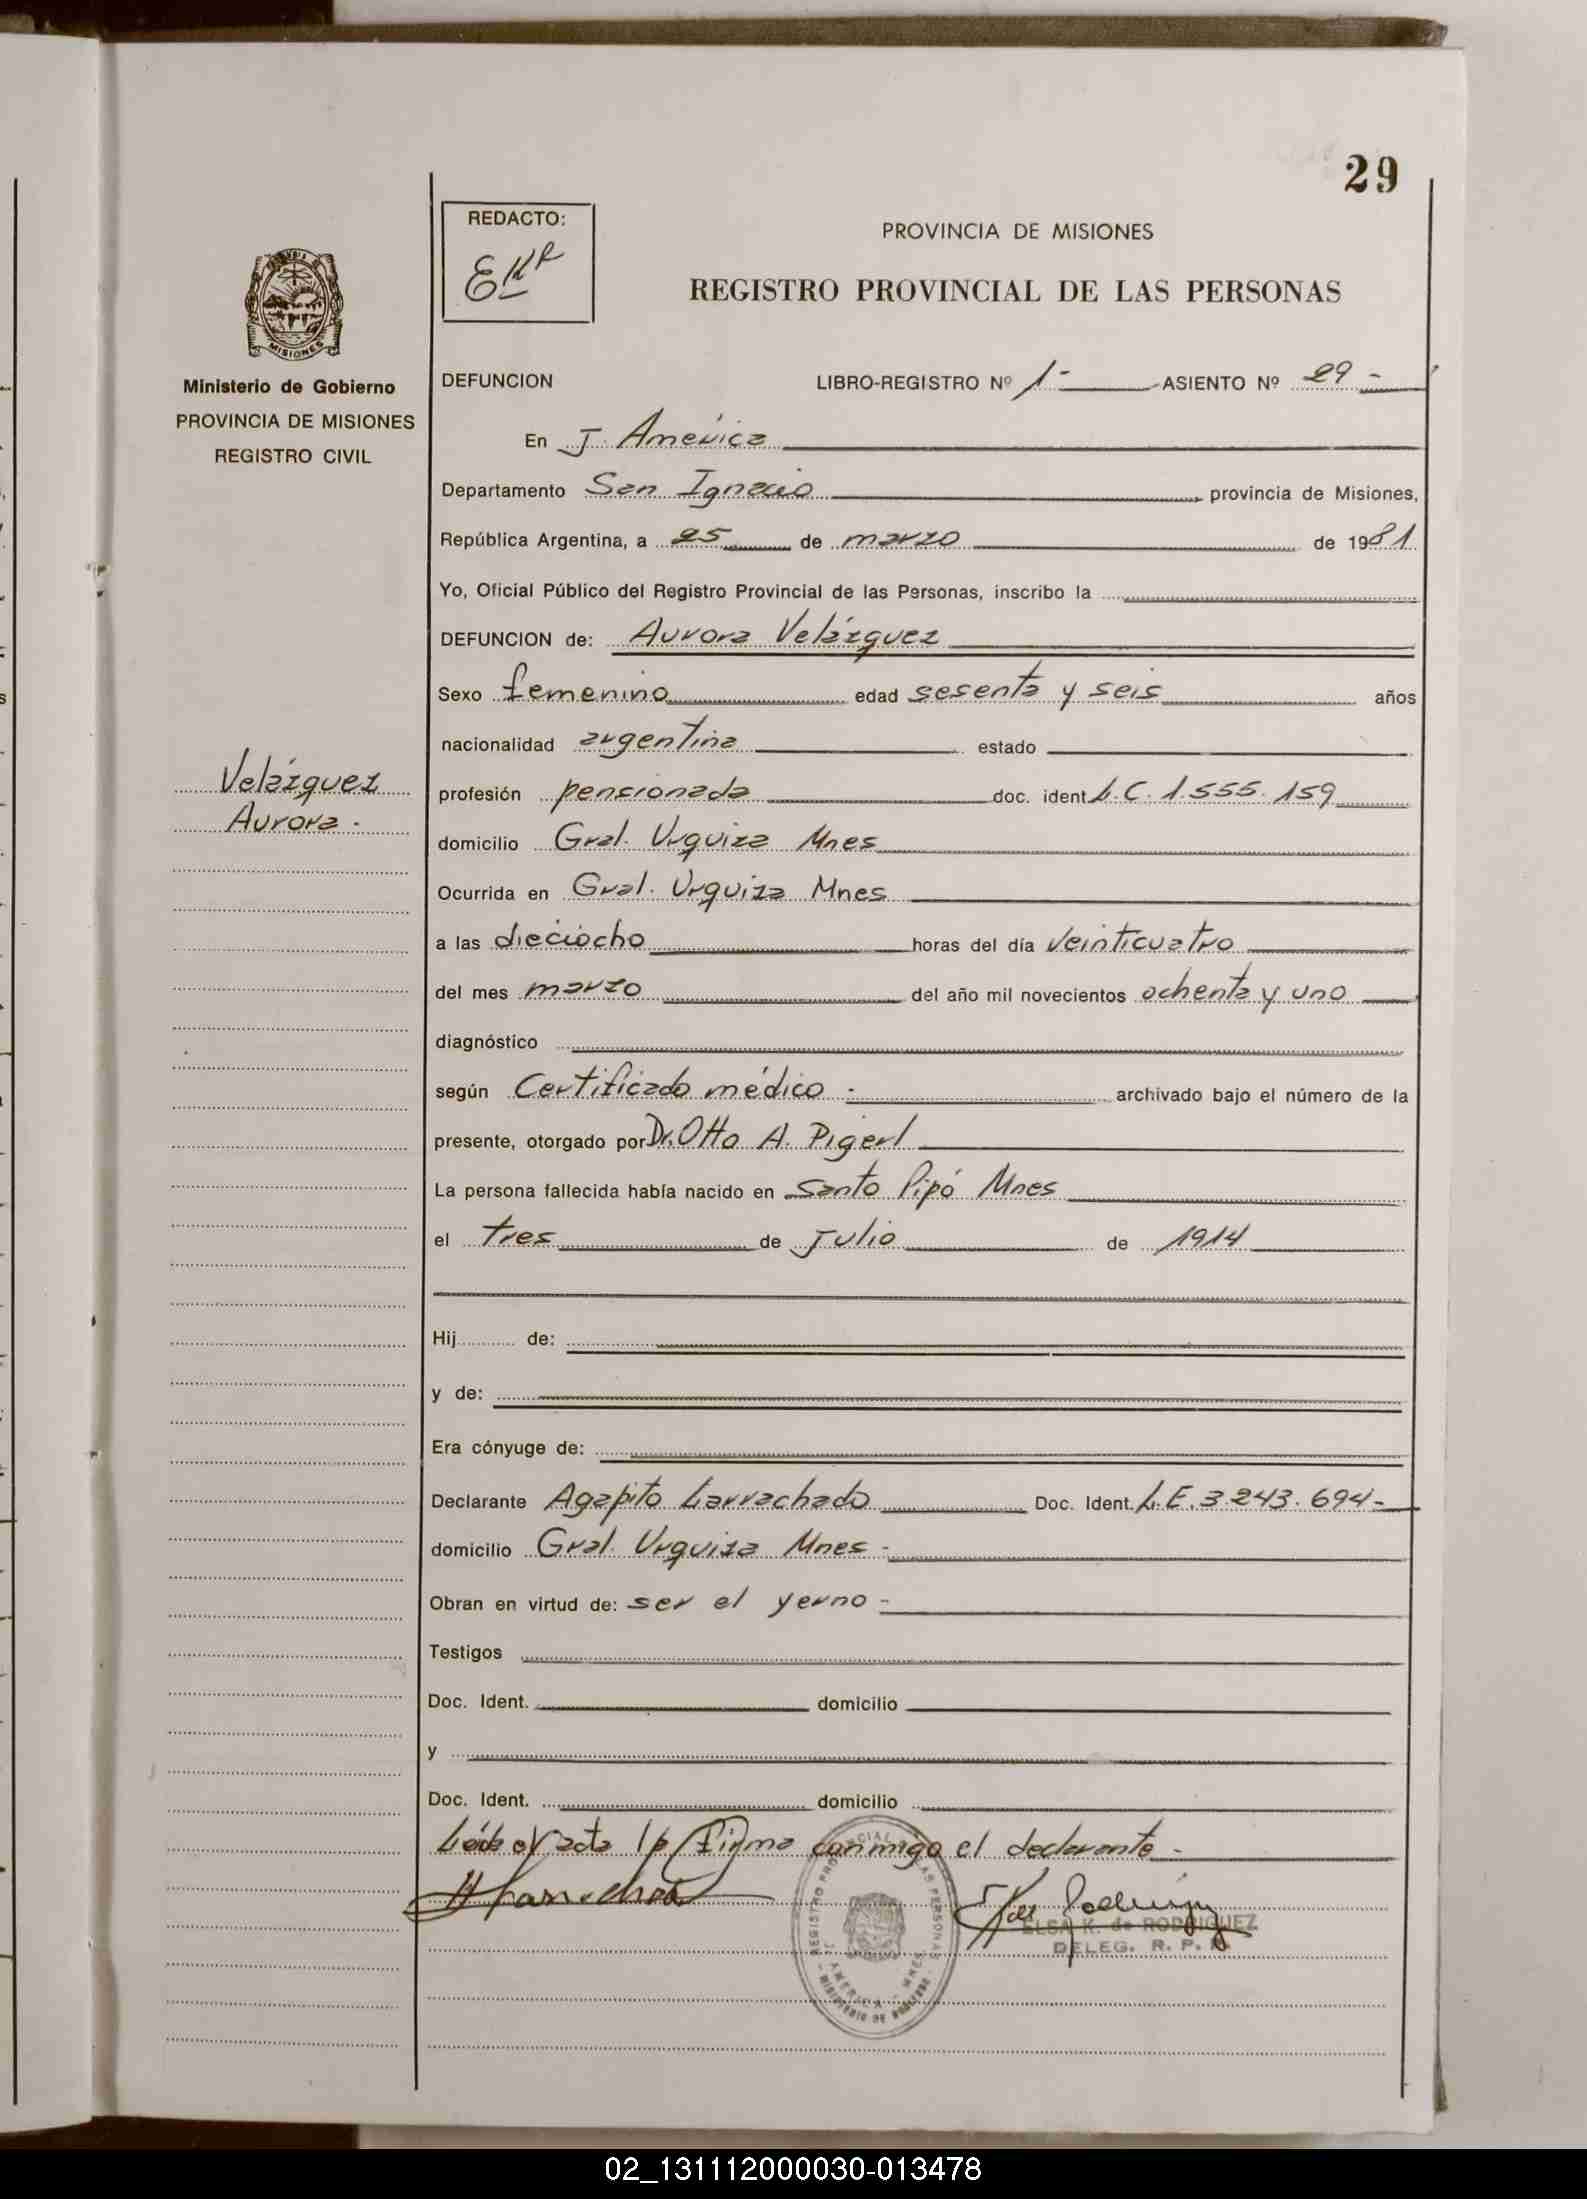 29
REDACTO:
EKR
PROVINCIA DE MISIONES
REGISTRO PROVINCIAL DE LAS PERSONAS
MISIONES
Ministerio de Gobierno
PROVINCIA DE MISIONES
REGISTRO CIVIL
Velázquez
Aurora -
DEFUNCION LIBRO-REGISTRO Nº 1- ASIENTO Nº 29 -
En J. América
Departamento San Ignacio provincia de Misiones,
República Argentina, a 25 de marzo de 1981
Yo, Oficial Público del Registro Provincial de las Personas, inscribo la
DEFUNCION de: Aurora Velázquez
Sexo femenino edad sesenta y seis años
nacionalidad argentina estado
profesión pensionada doc. ident L.C. 1.555.159
domicilio Gral. Urquiza Mnes
Ocurrida en Gral. Urquiza Mnes
a las dieciocho horas del día veinticuatro
del mes marzo del año mil novecientos ochenta y uno
diagnóstico
según Certificado médico - archivado bajo el número de la
presente, otorgado por Dr. Otto A. Pigerl
La persona fallecida había nacido en Santo Pipó Mnes
el tres de Julio de 1914
Hij de:
y de:
Era cónyuge de:
Declarante Agapito Larrachado Doc. Ident. L.E. 3.243.694-
domicilio Gral. Urquiza Mnes -
Obran en virtud de: ser el yerno -
Testigos
Doc. Ident. domicilio
y
Doc. Ident. domicilio
Leída el acta firma conmigo el declarante -
ELSA K. de RODRIGUEZ
DELEG. R. P. P.
02_131112000030-013478